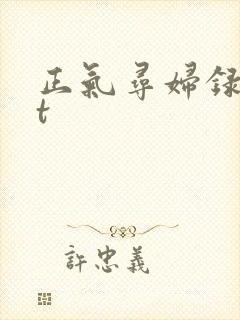 正氣尋婦録
t
許忠義